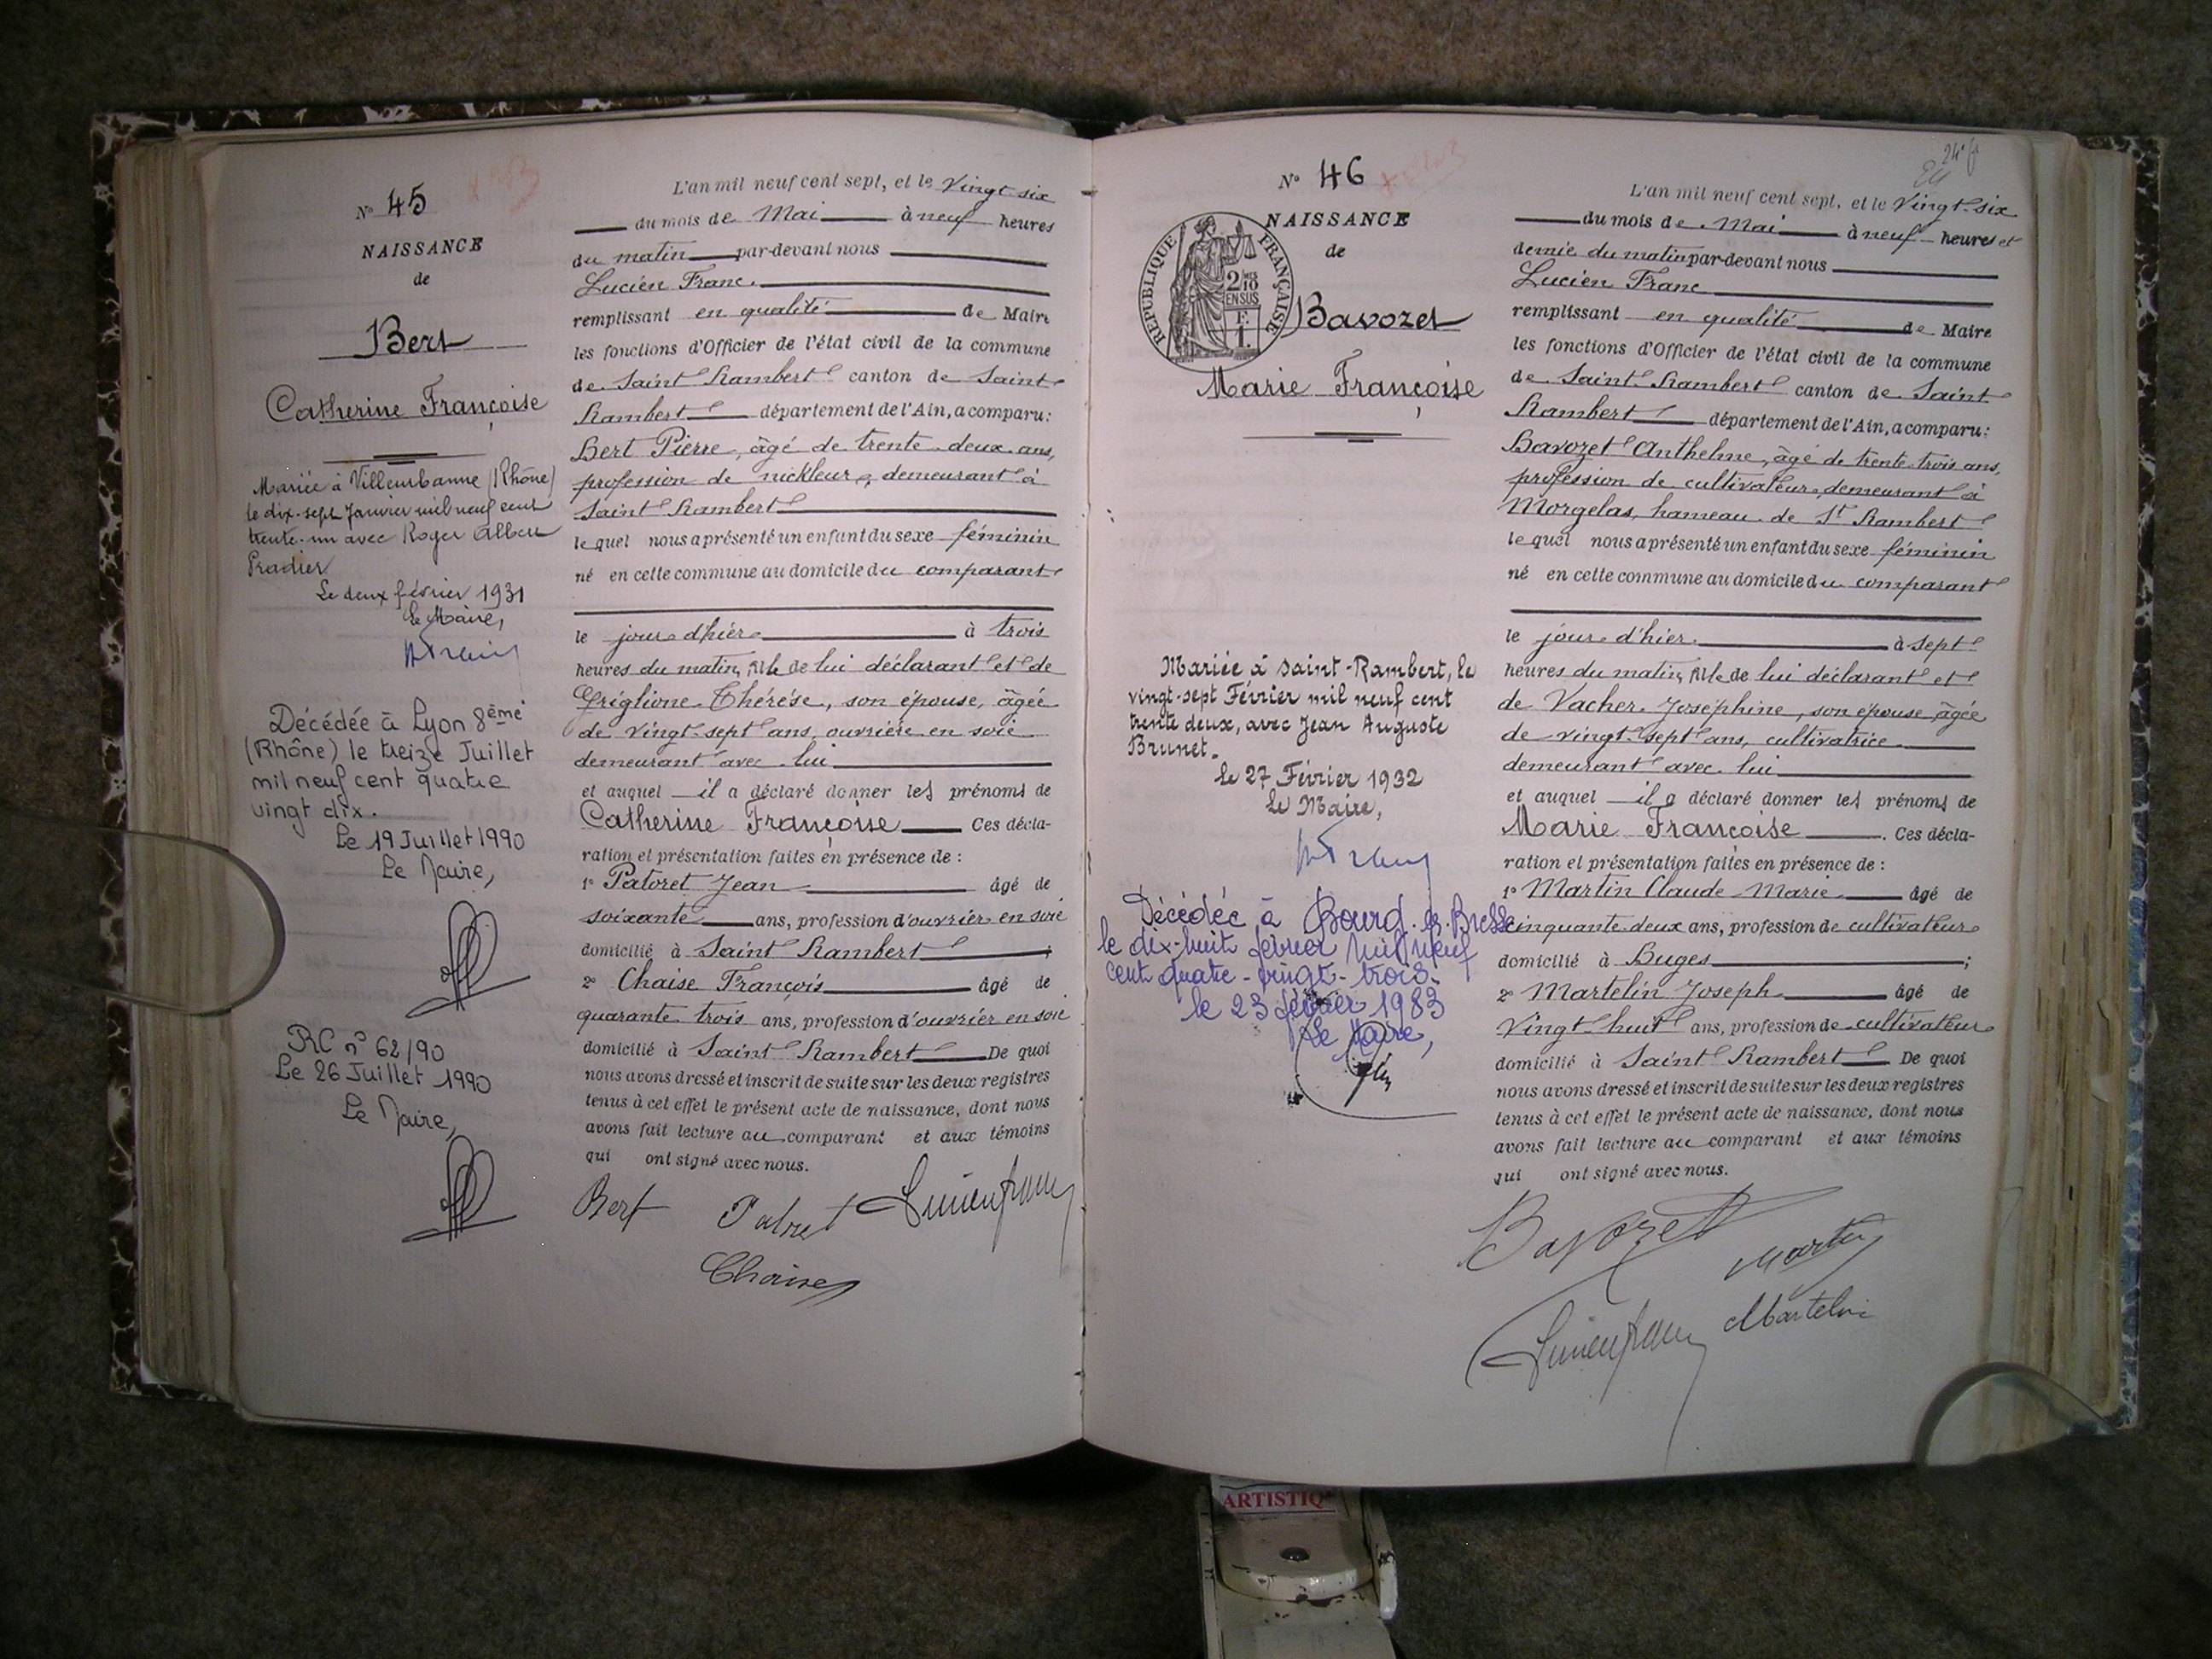 N° 45
NAISSANCE
de
Bert
Catherine Françoise
Mariée à Villeurbanne (Rhône)
le dix-sept Janvier mil neuf cent
trente-un avec Roger Albert
Pradier
Le deux février 1931
Le Maire,
Décédée à Lyon 8ème
(Rhône) le treize Juillet
mil neuf cent quatre
vingt dix.
Le 19 Juillet 1990
Le Maire,
RC n° 62/90
Le 26 Juillet 1990
Le Maire,
L'an mil neuf cent sept, et le Vingt-six
du mois de Mai à neuf heures
du matin par-devant nous
Lucien Franc.
remplissant en qualité de Maire
les fonctions d'Officier de l'état civil de la commune
de Saint Rambert canton de Saint
Rambert département de l'Ain, a comparu:
Bert Pierre, âgé de trente-deux ans,
profession de nickleur, demeurant à
Saint Rambert
lequel nous a présenté un enfant du sexe féminin
né en cette commune au domicile du comparant
le jour d'hier à trois
heures du matin, fille de lui déclarant et de
Griglione Thérèse, son épouse, âgée
de vingt-sept ans, ouvrière en soie
demeurant avec lui
et auquel il a déclaré donner les prénoms de
Catherine Françoise Ces décla-
ration et présentation faites en présence de :
1° Patoret Jean âgé de
soixante ans, profession d'ouvrier en soie
domicilié à Saint Rambert ;
2° Chaise François âgé de
quarante trois ans, profession d'ouvrier en soie
domicilié à Saint Rambert De quoi
nous avons dressé et inscrit de suite sur les deux registres
tenus à cet effet le présent acte de naissance, dont nous
avons fait lecture au comparant et aux témoins
qui ont signé avec nous.
Bert
Chaise
N° 46
NAISSANCE
de
RÉPUBLIQUE FRANÇAISE
2/10
EN SUS
Bavozet
Marie Françoise
Mariée à Saint-Rambert, le
vingt-sept Février mil neuf cent
trente deux, avec Jean Auguste
Brunet.
Le 27 Février 1932
Le Maire,
Décédée à Bourg-en-Bresse
le dix-huit février mil neuf
cent quatre-vingt-trois.
le 23 février 1983
Le Maire,
L'an mil neuf cent sept, et le Vingt-six
du mois de Mai à neuf heures et
demie du matin par-devant nous
Lucien Franc
remplissant en qualité de Maire
les fonctions d'Officier de l'état civil de la commune
de Saint-Rambert canton de Saint
Rambert département de l'Ain, a comparu:
Bavozet Anthelme, âgé de trente-trois ans,
profession de cultivateur demeurant à
Morgelas, hameau de St Rambert
lequel nous a présenté un enfant du sexe féminin
né en cette commune au domicile du comparant
le jour d'hier. à sept
heures du matin, fille de lui déclarant et
de Vacher Joséphine, son épouse, âgée
de vingt-sept ans, cultivatrice
demeurant avec lui
et auquel il a déclaré donner les prénoms de
Marie Françoise . Ces décla-
ration et présentation faites en présence de :
1° Martin Claude-Marie âgé de
cinquante-deux ans, profession de cultivateur
domicilié à Buges ;
2° Martelin Joseph âgé de
Vingt-huit ans, profession de cultivateur
domicilié à Saint Rambert De quoi
nous avons dressé et inscrit de suite sur les deux registres
tenus à cet effet le présent acte de naissance, dont nous
avons fait lecture au comparant et aux témoins
qui ont signé avec nous.
Bavozet
Martin
Martelin